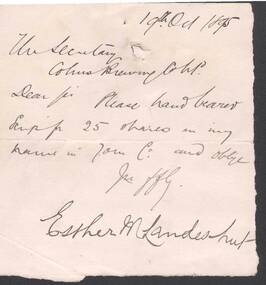 19th Oct 1895
The Secretary
Cohns Brewing Co Ld.
Dear Sir Please hand bearer
Scrip for 25 shares in my
name in your Co. and oblige
Yrs ffly.
Esther M Landeshut